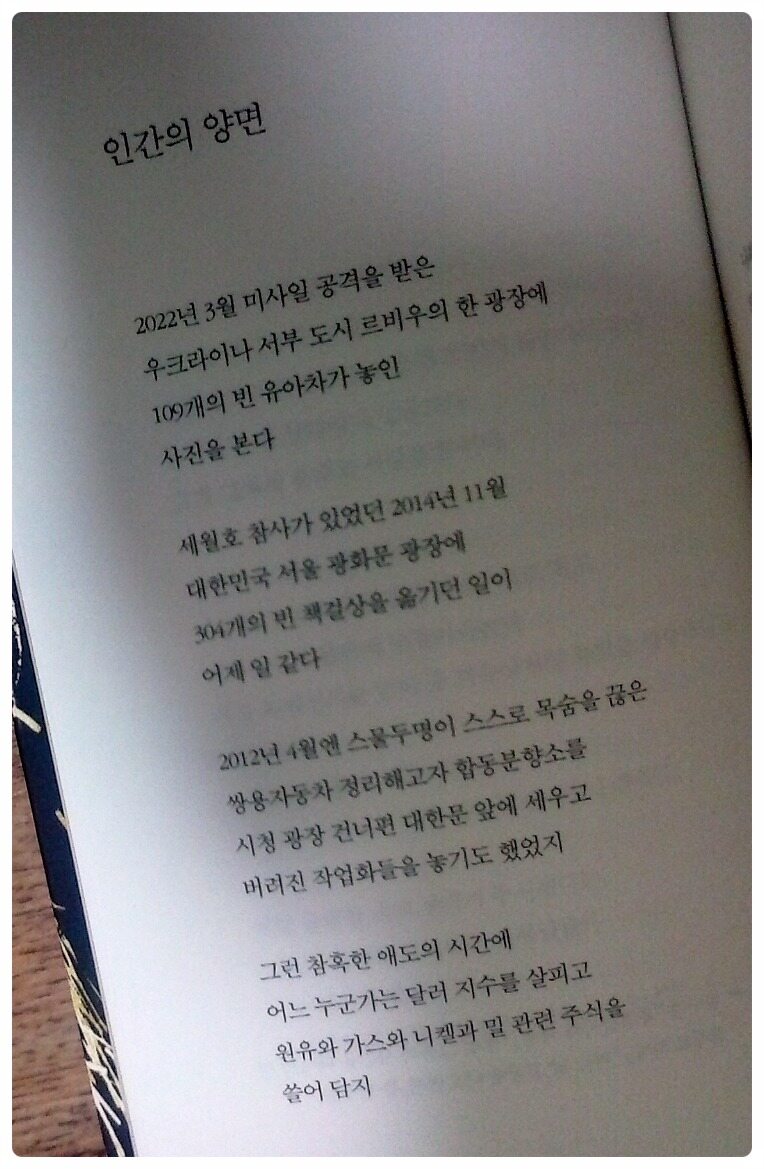 인간의 양면
2022년 3월 미사일 공격을 받은
우크라이나 서부 도시 르비우의 한 광장에
109개의 빈 유아차가 놓인
사진을 본다
세월호 참사가 있었던 2014년 11월
대한민국 서울 광화문 광장에
304개의 빈 책걸상을 옮기던 일이
어제 일 같다
2012년 4월엔 스물두명이 스스로 목숨을 끊은
쌍용자동차 정리해고자 합동분향소를
시청 광장 건너편 대한문 앞에 세우고
버려진 작업화들을 놓기도 했었지
그런 참혹한 애도의 시간에
어느 누군가는 달러 지수를 살피고
원유와 가스와 니켈과 밀 관련 주식을
쓸어 담지